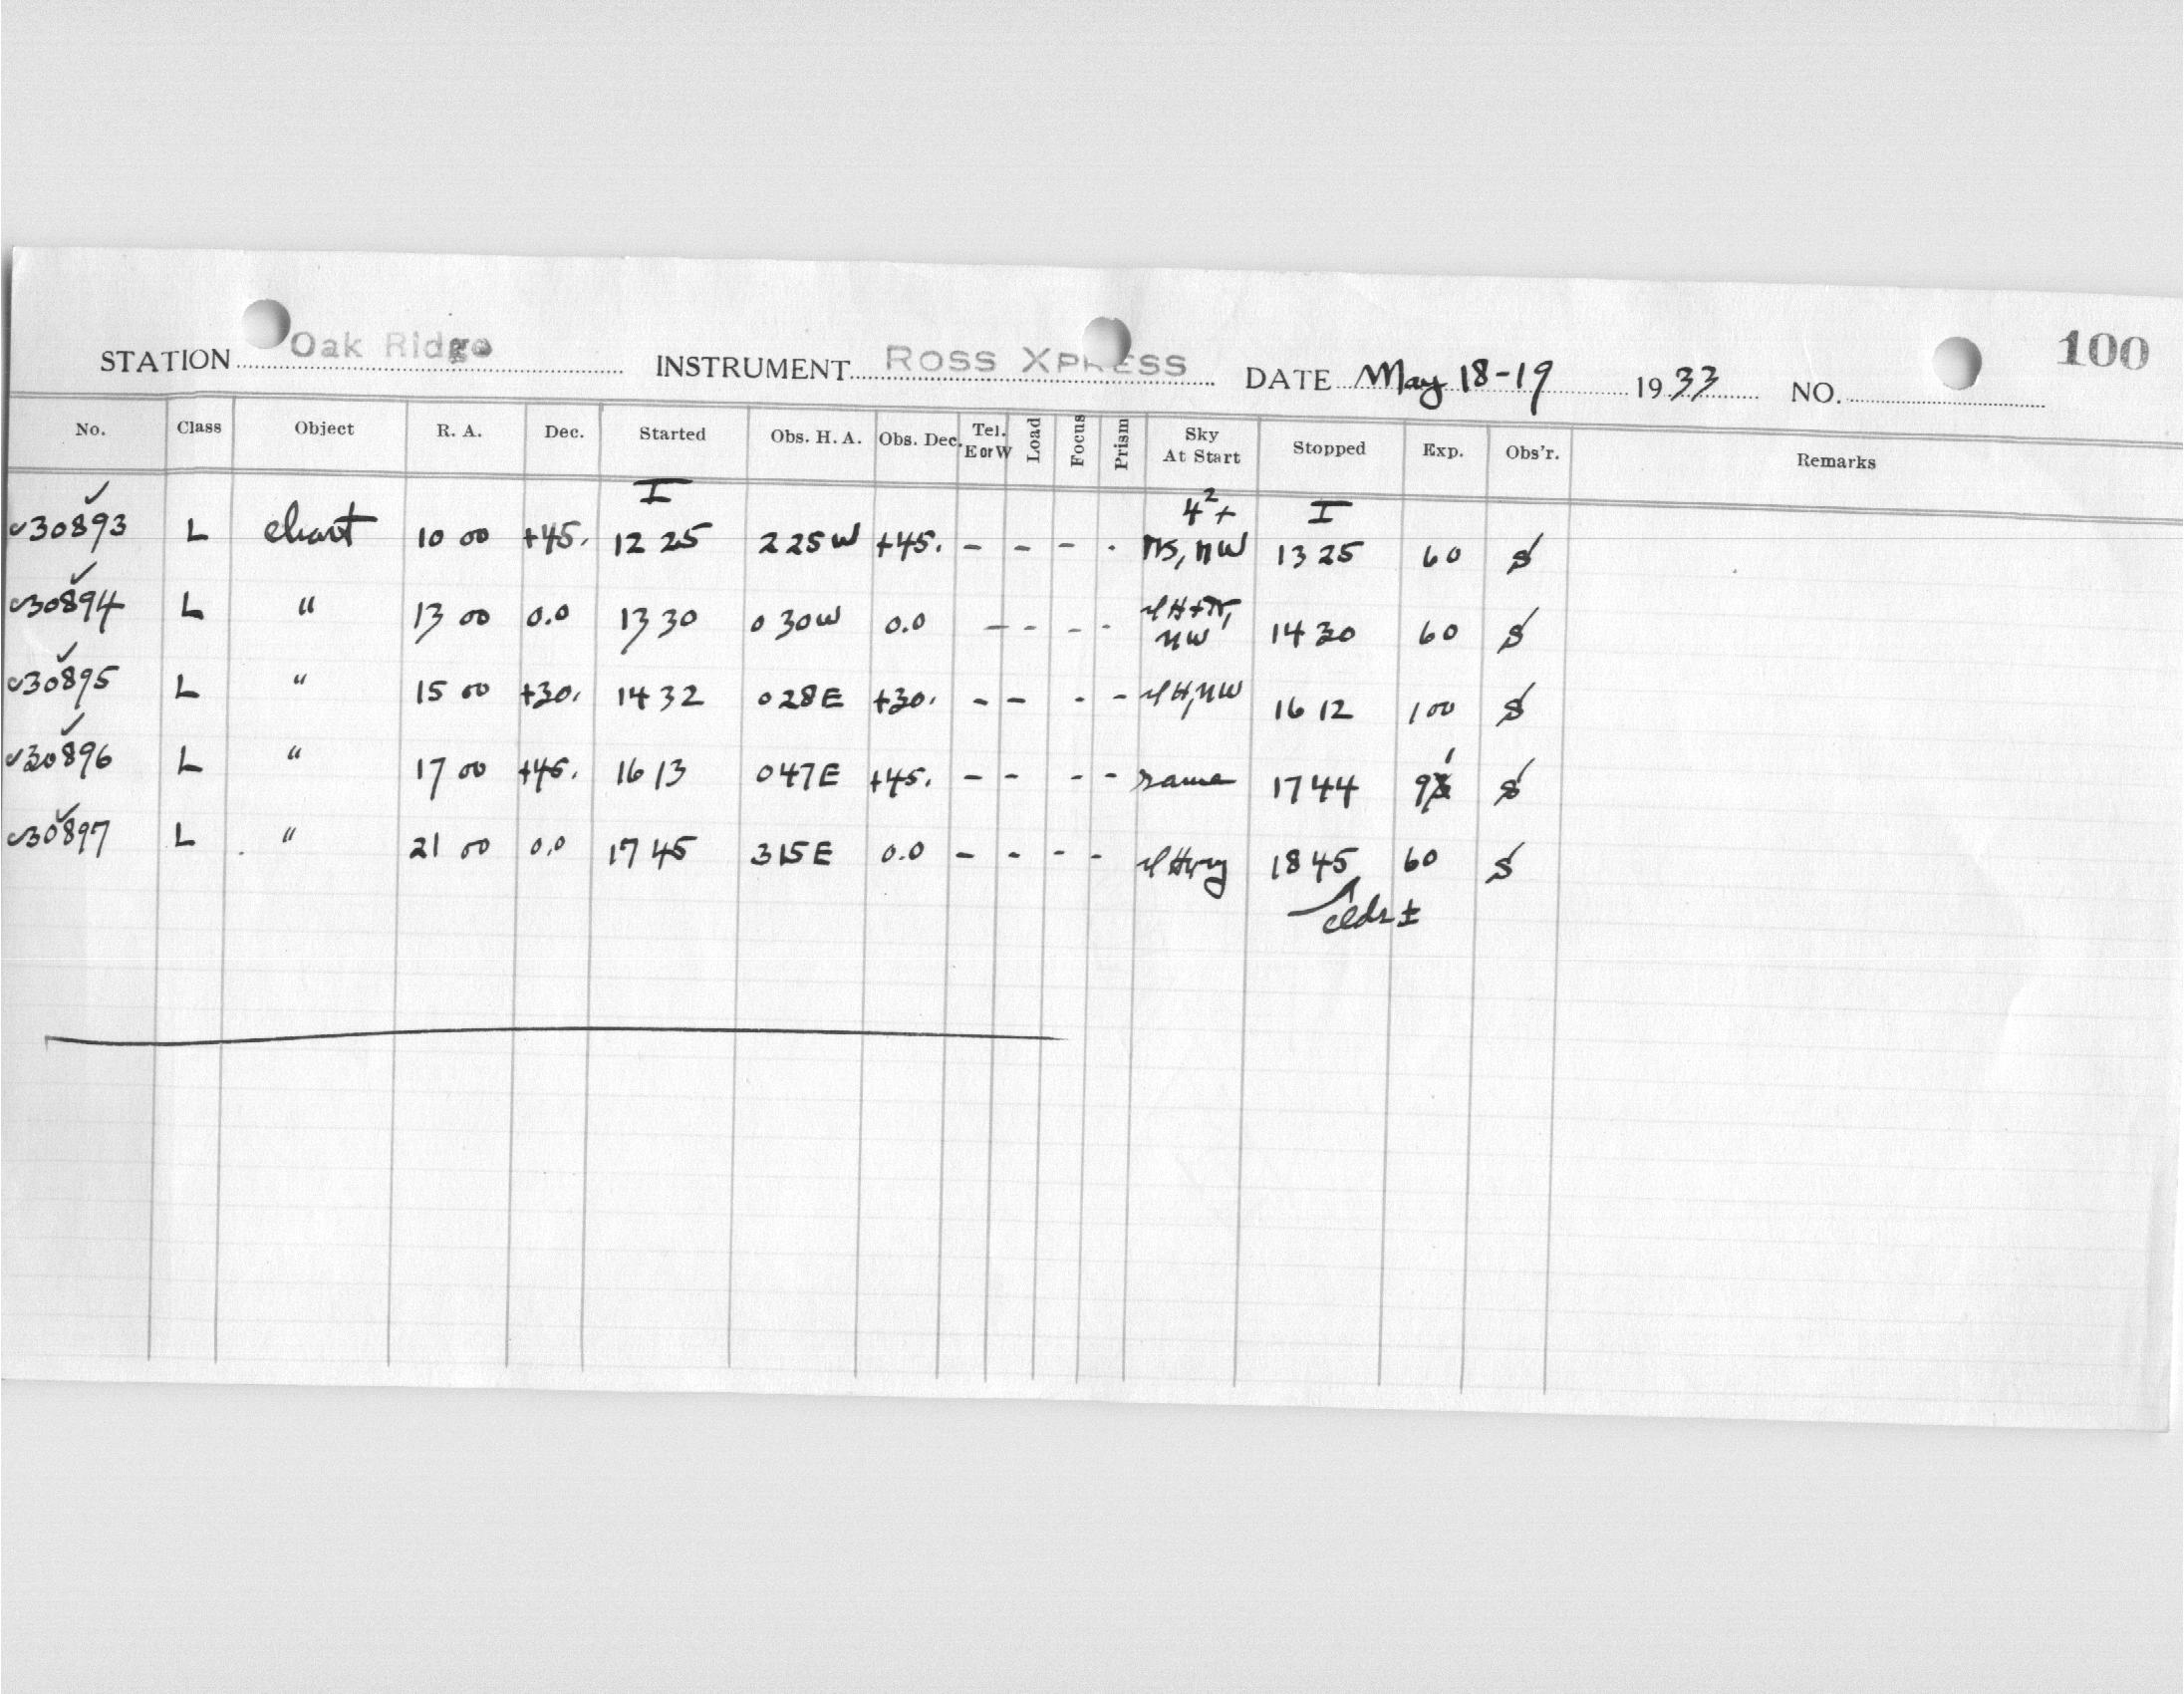 100
STATION Oak Ridge INSTRUMENT ROSS XPRESS DATE May 18-19 1933 NO.
No. Class Object R. A. Dec. Started Obs. H. A. Obs. Dec. Tel. E or W Load Focus Prism Sky At Start Stopped Exp. Obs'r. Remarks
I 4²+ I
✓30893 L chart 10 00 +45. 12 25 2 25 W +45. - - - . NW 13 25 60 S
✓30894 L " 13 00 0.0 13 30 0 30 W 0.0 - - - - NW 14 30 60 S
✓30895 L " 15 00 +30. 14 32 0 28 E +30. - - - - NW 16 12 100 S
✓30896 L " 17 00 +45. 16 13 0 47 E +45. - - - - same 17 44 91 S
✓30897 L " 21 00 0.0 17 45 3 15 E 0.0 - - - - 18 45 60 S
clds ±